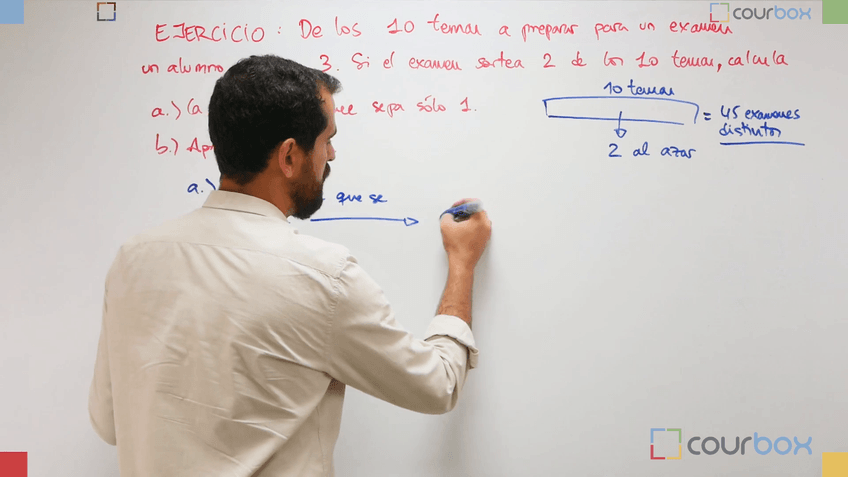 courbox
EJERCICIO : De los 10 temas a preparar para un examen
un alumno 3. Si el examen sortea 2 de los 10 temas, calcula
a.) sepa sólo 1.
b.)
10 temas
= 45 exámenes
distintos
2 al azar
a.) que se
courbox